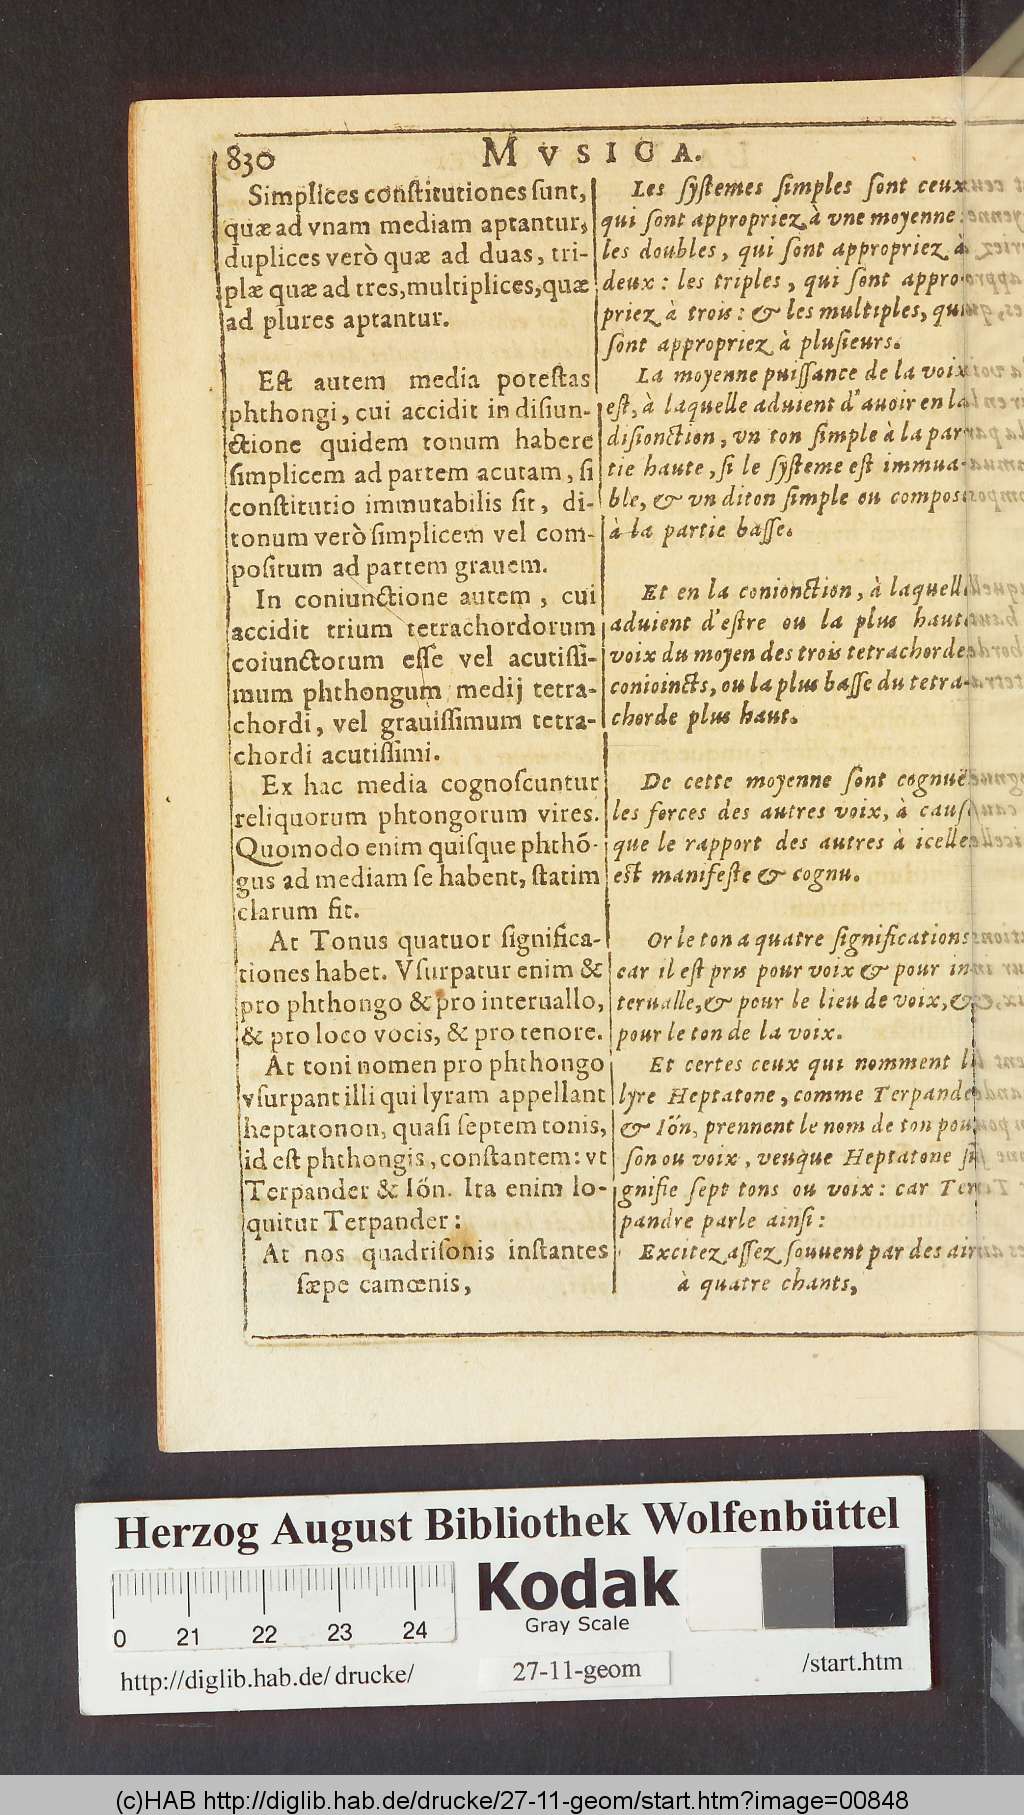 830 MVSICA.
Simplices constitutiones sunt,
quæ ad vnam mediam aptantur,
duplices verò quæ ad duas, tri-
plæ quæ ad tres, multiplices, quæ
ad plures aptantur.
Est autem media potestas
phthongi, cui accidit in disiun-
ctione quidem tonum habere
simplicem ad partem acutam, si
constitutio immutabilis sit, di-
tonum verò simplicem vel com-
positum ad partem grauem.
In coniunctione autem, cui
accidit trium tetrachordorum
coiunctorum esse vel acutissi-
mum phthongum medij tetra-
chordi, vel grauissimum tetra-
chordi acutissimi.
Ex hac media cognoscuntur
reliquorum phtongorum vires.
Quomodo enim quisque phthõ-
gus ad mediam se habent, statim
clarum fit.
At Tonus quatuor significa-
tiones habet. Vsurpatur enim &
pro phthongo & pro interuallo,
& pro loco vocis, & pro tenore.
At toni nomen pro phthongo
vsurpant illi qui lyram appellant
heptatonon, quasi septem tonis,
id est phthongis, constantem: vt
Terpander & Iön. Ita enim lo-
quitur Terpander:
At nos quadrisonis instantes
sæpe camœnis,
Les systemes simples sont ceux
qui sont appropriez à vne moyenne:
les doubles, qui sont appropriez à
deux: les triples, qui sont appro-
priez à trois: & les multiples, qui
sont appropriez à plusieurs.
La moyenne puissance de la voix
est, à laquelle aduient d'auoir en la
disionction, vn ton simple à la par-
tie haute, si le systeme est immua-
ble, & vn diton simple ou composé
à la partie basse.
Et en la conionction, à laquelle
aduient d'estre ou la plus haute
voix du moyen des trois tetrachordes
conioincts, ou la plus basse du tetra-
chorde plus haut.
De cette moyenne sont cognuës
les forces des autres voix, à cause
que le rapport des autres à icelle
est manifeste & cognu.
Or le ton a quatre significations:
car il est pris pour voix & pour in-
terualle, & pour le lieu de voix, &
pour le ton de la voix.
Et certes ceux qui nomment la
lyre Heptatone, comme Terpandre
& Iön, prennent le nom de ton pour
son ou voix, veuque Heptatone si-
gnifie sept tons ou voix: car Ter-
pandre parle ainsi:
Excitez assez souuent par des airs
à quatre chants,
Herzog August Bibliothek Wolfenbüttel
Kodak
Gray Scale
0 21 22 23 24
http://diglib.hab.de/ drucke/ 27-11-geom /start.htm
(c)HAB http://diglib.hab.de/drucke/27-11-geom/start.htm?image=00848